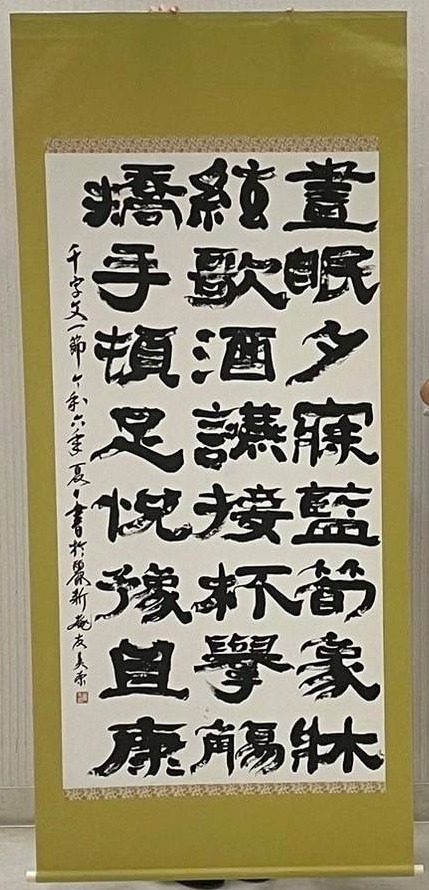 晝眠夕寐藍筍象牀
絃歌酒讌接杯擧觴
矯手頓足悦豫且康
千字文一節令和六年夏日書於